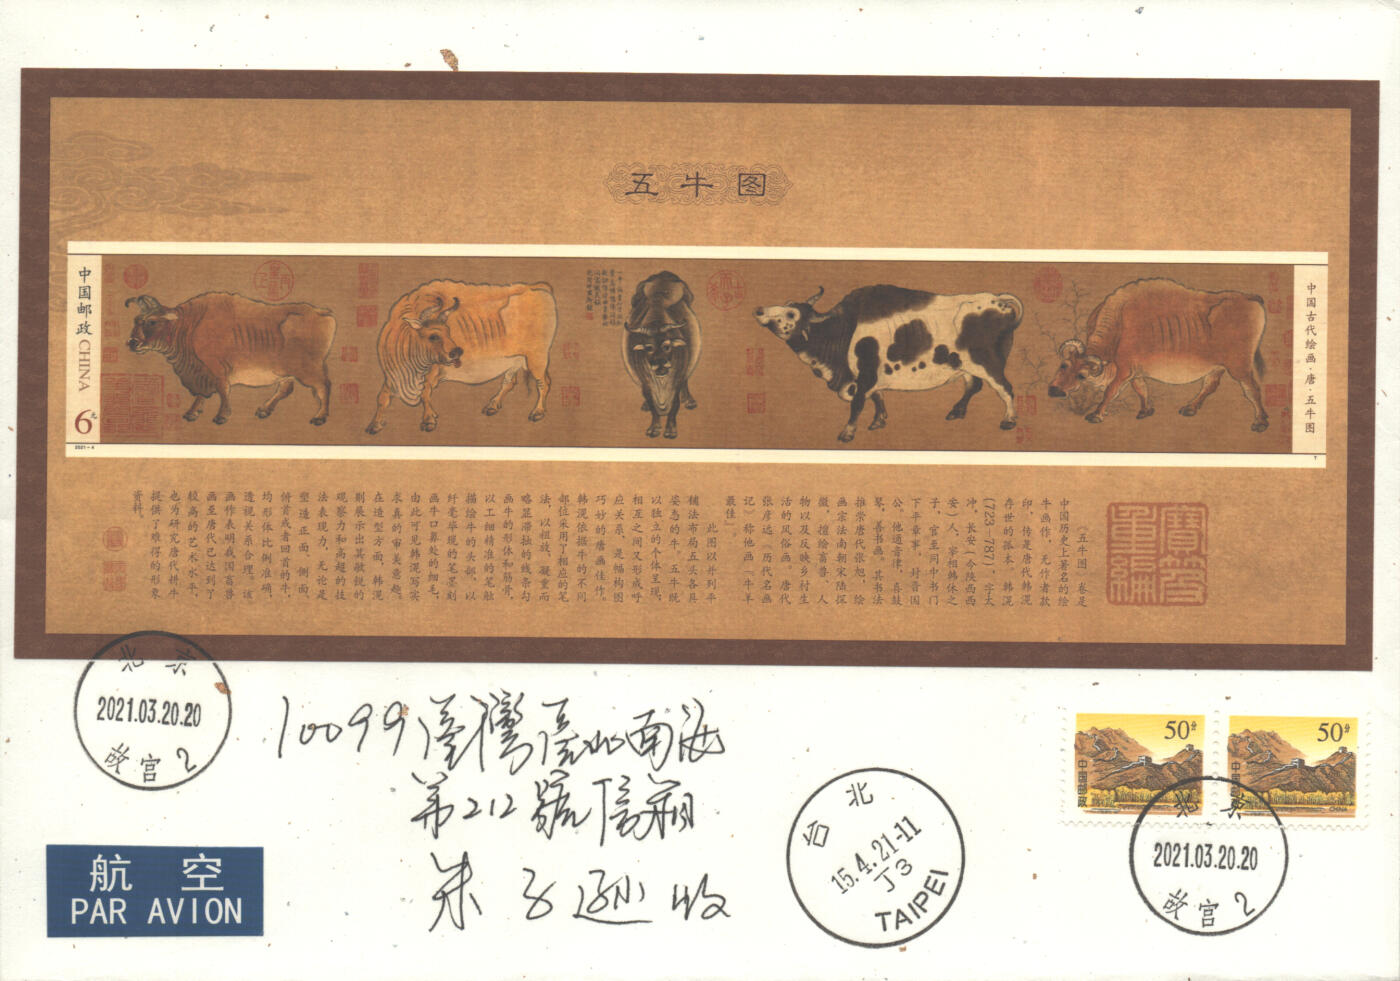 五牛图
中国邮政 CHINA
6元
2021-4
中国古代绘画·唐·五牛图
T
《五牛图》卷是
中国历史上著名的绘
牛画作,无作者款
印,传是唐代韩滉
存世的孤本。韩滉
(723-787),字太
冲,长安(今陕西西
安)人,宰相韩休之
子,官至同中书门
下平章事,封晋国
公。他通音律,喜鼓
琴,善书画。其书法
推崇唐代张旭,绘
画宗法南朝宋陆探
微,擅绘畜兽、人
物以及反映乡村生
活的风俗画。唐代
张彦远《历代名画
记》称他画“牛羊
最佳”。
此图以并列平
铺法布局五头各具
姿态的牛。五牛既
以独立的个体呈现,
相互之间又形成呼
应关系,是幅构图
巧妙的唐画佳作。
韩滉依据牛的不同
部位采用了相应的笔
法,以粗放、凝重而
略显滞拙的线条勾
画牛的形体和筋骨,
以工细精准的笔触
描绘牛的头部、以
纤毫毕现的笔墨刻
画牛口鼻处的细毛,
由此可见韩滉写实
求真的审美意趣。
在造型方面,韩滉
则展示出其敏锐的
观察力和高超的技
法表现力,无论是
塑造正面、侧面、
俯首或者回首的牛,
均形体比例准确,
透视关系合理。该
画作表明我国畜兽
画至唐代已达到了
较高的艺术水平,
也为研究唐代耕牛
提供了难得的形象
资料。
北京
2021.03.20.20
故宫 2
10099 臺灣臺北南海
第212號信箱
朱子遜收
50分
中国邮政
CHINA
50分
中国邮政
CHINA
北京
2021.03.20.20
故宫 2
台北
15.4.21-11
J3
TAIPEI
航空
PAR AVION